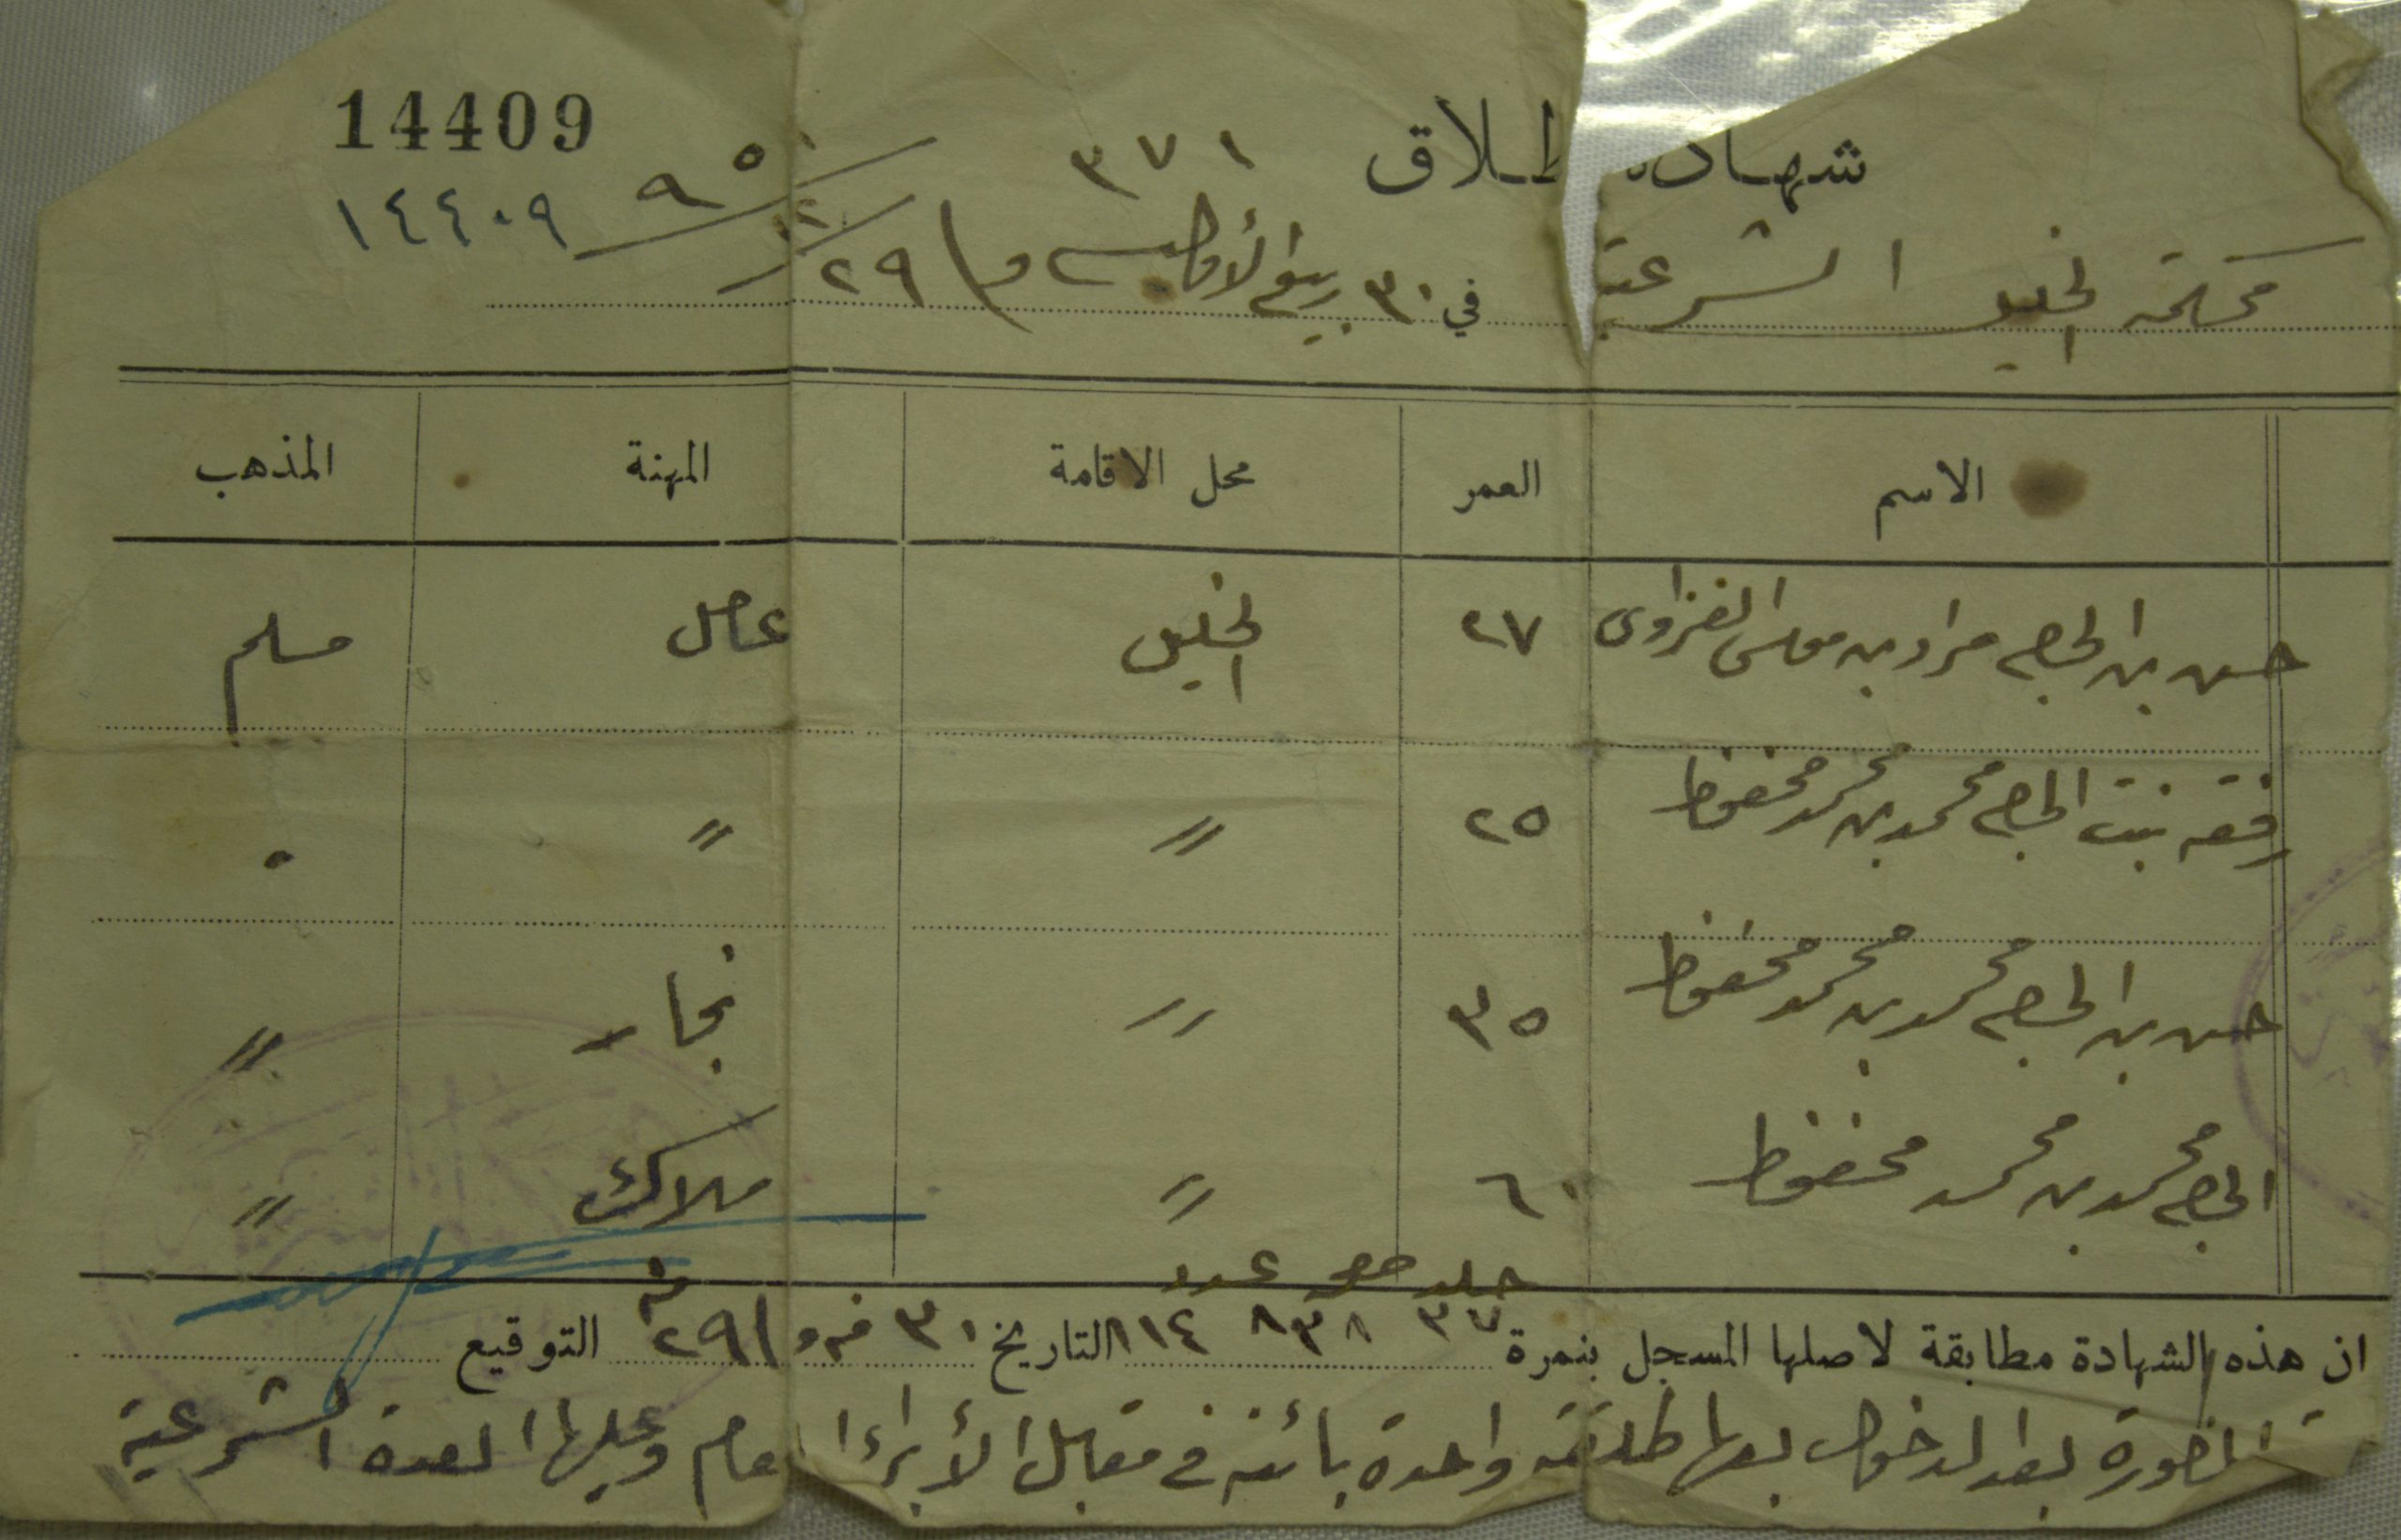 14409
شهادة طلاق ٣٧١
١٤٤٠٩
محكمة الخليل الشرعية في ٣٠ ربيع الأول
الاسم العمر محل الاقامة المهنة المذهب
حسن بن الحاج مراد بن موسى الغزاوى ٢٧ الخليل عامل مسلم
رفقه بنت الحاج محمد بن محمد محفوظ ٢٥ 〃 〃
حسن بن الحاج محمد بن محمد محفوظ ٣٥ 〃 نجار 〃
الحاج محمد بن محمد محفوظ ٦٠ 〃 ملاك 〃
جلد صحفه عدد
ان هذه الشهادة مطابقة لاصلها المسجل بنمرة ٣٧ ٨٣٨ ١١٤ التاريخ ٣٠ التوقيع
المذكورة بعد الدخول بها طلقة واحدة بائنه في مقابل الأبراء العام وعليها العدة الشرعية